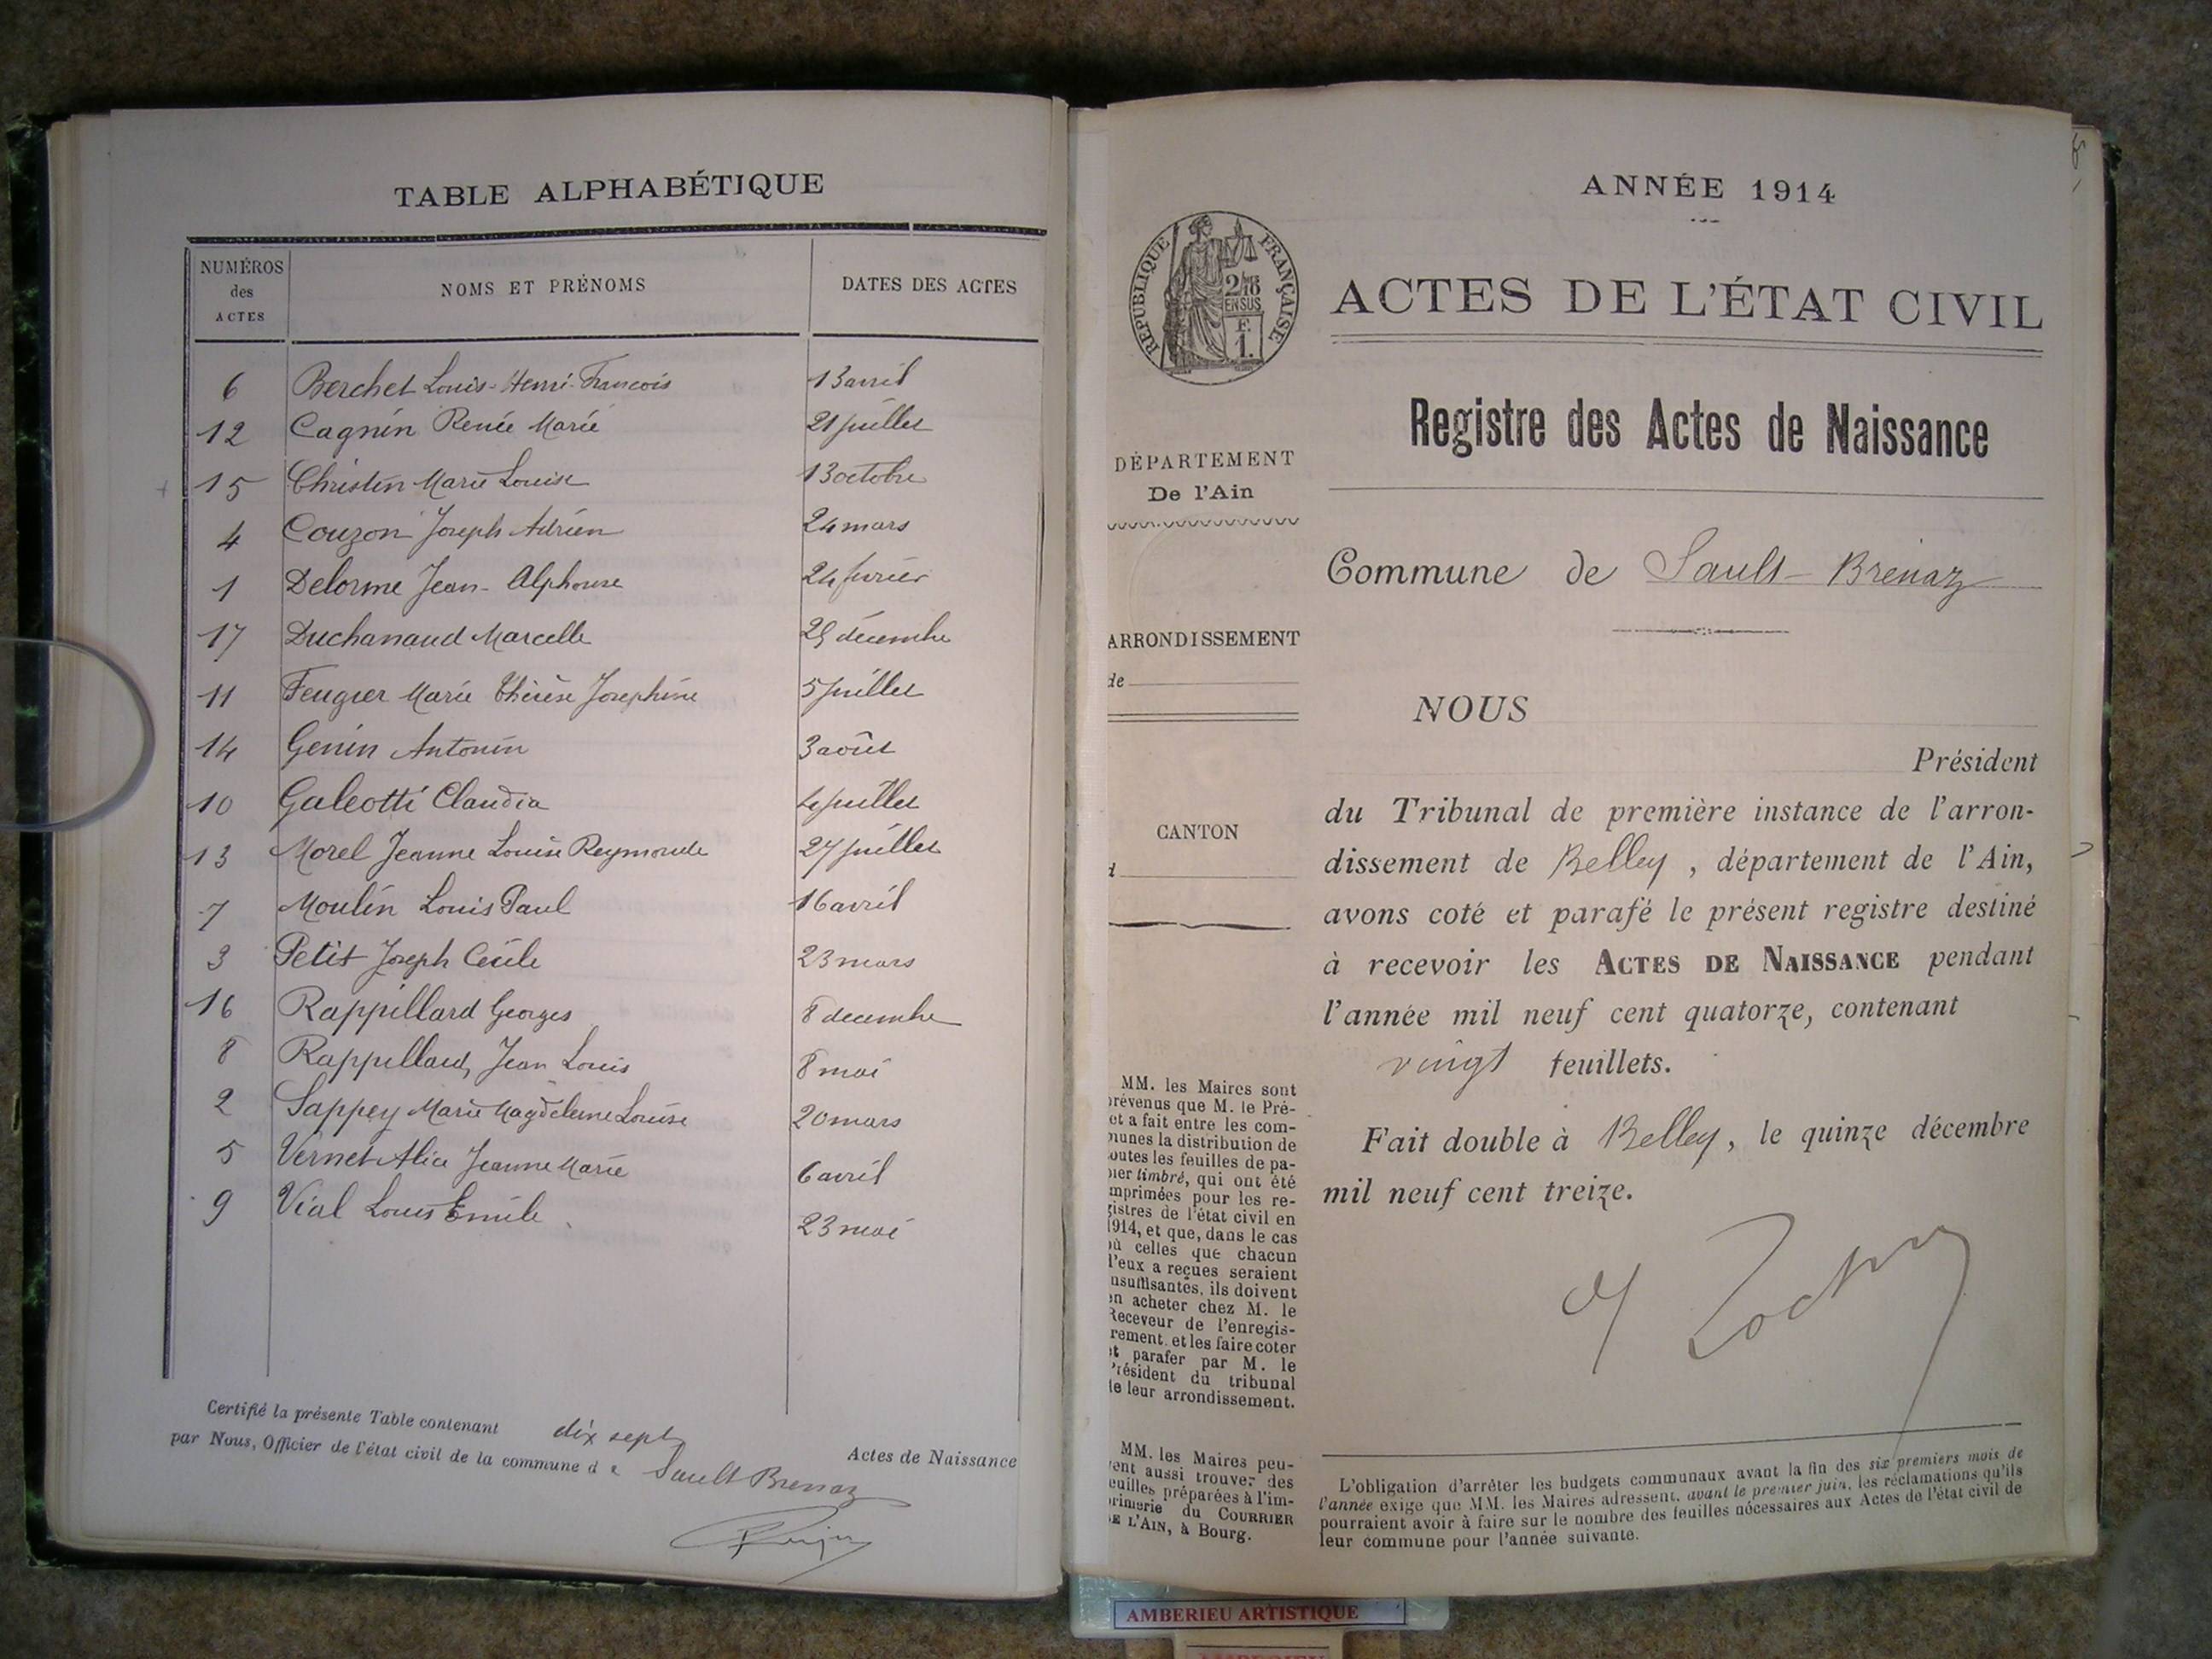 TABLE ALPHABÉTIQUE
NUMÉROS des ACTES NOMS ET PRÉNOMS DATES DES ACTES
6 Berchet Louis-Henri-Francois 13 avril
12 Cagnin Renée Marie 21 juillet
15 Christin Marie Louise 13 octobre
4 Couzon Joseph Adrien 24 mars
1 Delorme Jean-Alphonse 24 fevrier
17 Duchanaud Marcelle 25 décembre
11 Feugier Marie Thérèse Joséphine 5 juillet
14 Genin Antonin 3 août
10 Galeotti Claudia 4 juillet
13 Morel Jeanne Louise Reymonde 27 juillet
7 Moulin Louis Paul 16 avril
3 Petit Joseph Cécile 23 mars
16 Rappillard Georges 8 decembre
8 Rappillard Jean Louis 8 mai
2 Sappey Marie Magdeleine Louise 20 mars
5 Vernet Alice Jeanne Marie 6 avril
9 Vial Louis Emile 23 mai
Certifié la présente Table contenant dix sept Actes de Naissance
par Nous, Officier de l'état civil de la commune d e Sault Brenaz
ANNÉE 1914
RÉPUBLIQUE FRANÇAISE
2/10
EN SUS
F.
1.
ACTES DE L'ÉTAT CIVIL
Registre des Actes de Naissance
DÉPARTEMENT
De l'Ain
Commune de Sault-Brenaz
ARRONDISSEMENT
de
CANTON
NOUS
Président
du Tribunal de première instance de l'arron-
dissement de Belley, département de l'Ain,
avons coté et parafé le présent registre destiné
à recevoir les ACTES DE NAISSANCE pendant
l'année mil neuf cent quatorze, contenant
vingt feuillets.
Fait double à Belley, le quinze décembre
mil neuf cent treize.
MM. les Maires sont
prévenus que M. le Pré-
et a fait entre les com-
munes la distribution de
toutes les feuilles de pa-
pier timbré, qui ont été
imprimées pour les re-
gistres de l'état civil en
1914, et que, dans le cas
où celles que chacun
d'eux a reçues seraient
insuffisantes, ils doivent
en acheter chez M. le
Receveur de l'enregis-
rement, et les faire coter
et parafer par M. le
Président du tribunal
de leur arrondissement.
MM. les Maires peu-
vent aussi trouver des
feuilles préparées à l'im-
primerie du COURRIER
DE L'AIN, à Bourg.
L'obligation d'arrêter les budgets communaux avant la fin des six premiers mois de
l'année exige que MM. les Maires adressent, avant le premier juin, les réclamations qu'ils
pourraient avoir à faire sur le nombre des feuilles nécessaires aux Actes de l'état civil de
leur commune pour l'année suivante.
AMBERIEU ARTISTIQUE
AMBERIEU